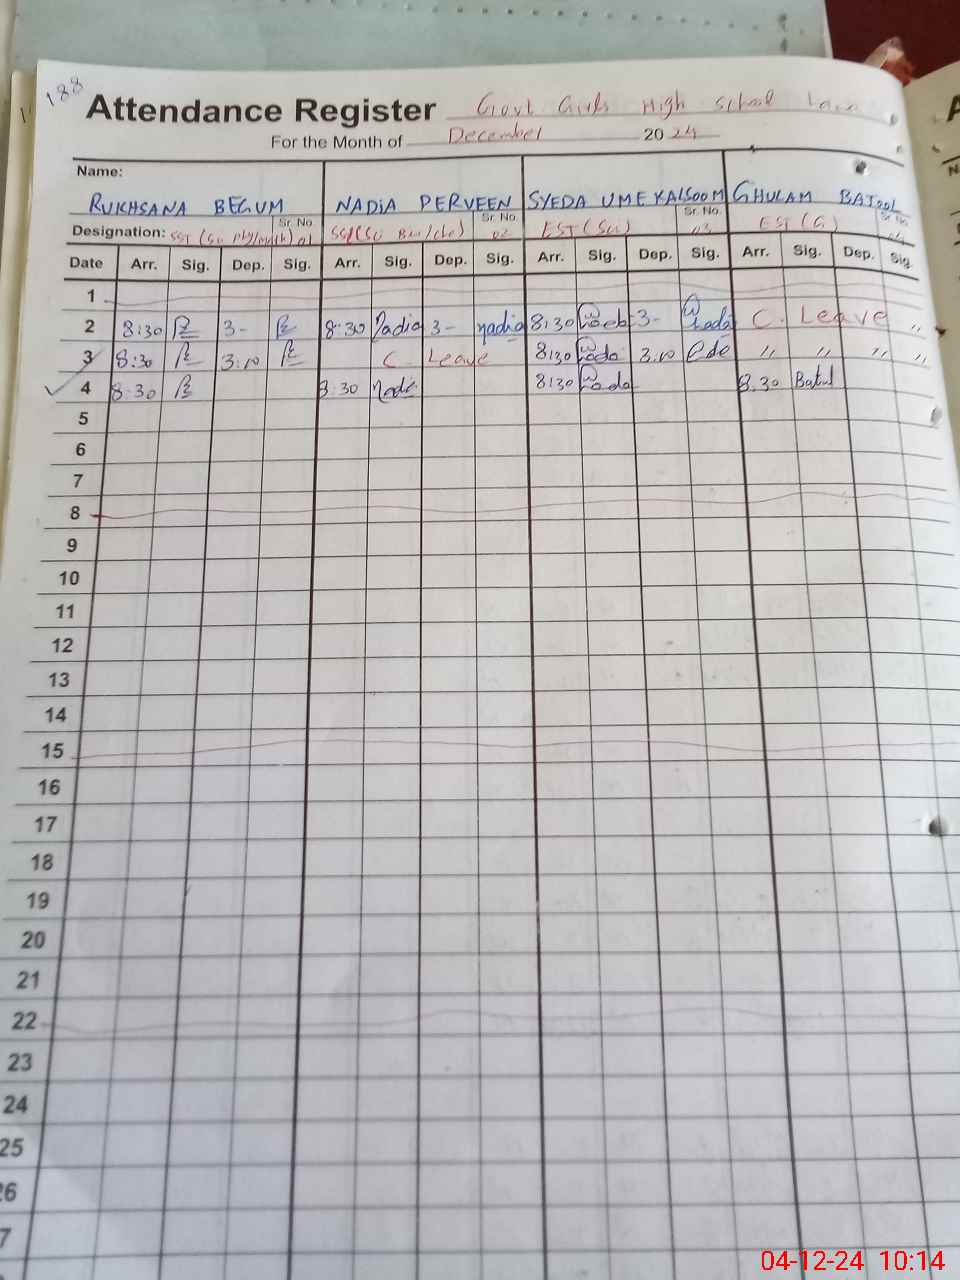 188
Attendance Register Govt Girls High School
For the Month of December 2024
Name:
RUKHSANA BEGUM NADIA PERVEEN SYEDA UME KALSOOM GHULAM BATOOL
Designation: SST (Sc Phy/Math) Sr. No 01 SST (Sc Bio/Che) Sr. No. 02 EST (Sci) Sr. No. 03 EST (G) Sr. No.
Date Arr. Sig. Dep. Sig. Arr. Sig. Dep. Sig. Arr. Sig. Dep. Sig. Arr. Sig. Dep. Sig.
1
2 8:30 3- 8:30 Nadia 3- nadia 8:30 3- C. Leave "
3 8:30 3:10 C. Leave 8:30 3:10 " " " "
4 8:30 8:30 Nadi 8:30 8.30 Batul
5
6
7
8
9
10
11
12
13
14
15
16
17
18
19
20
21
22
23
24
25
26
7
04-12-24 10:14